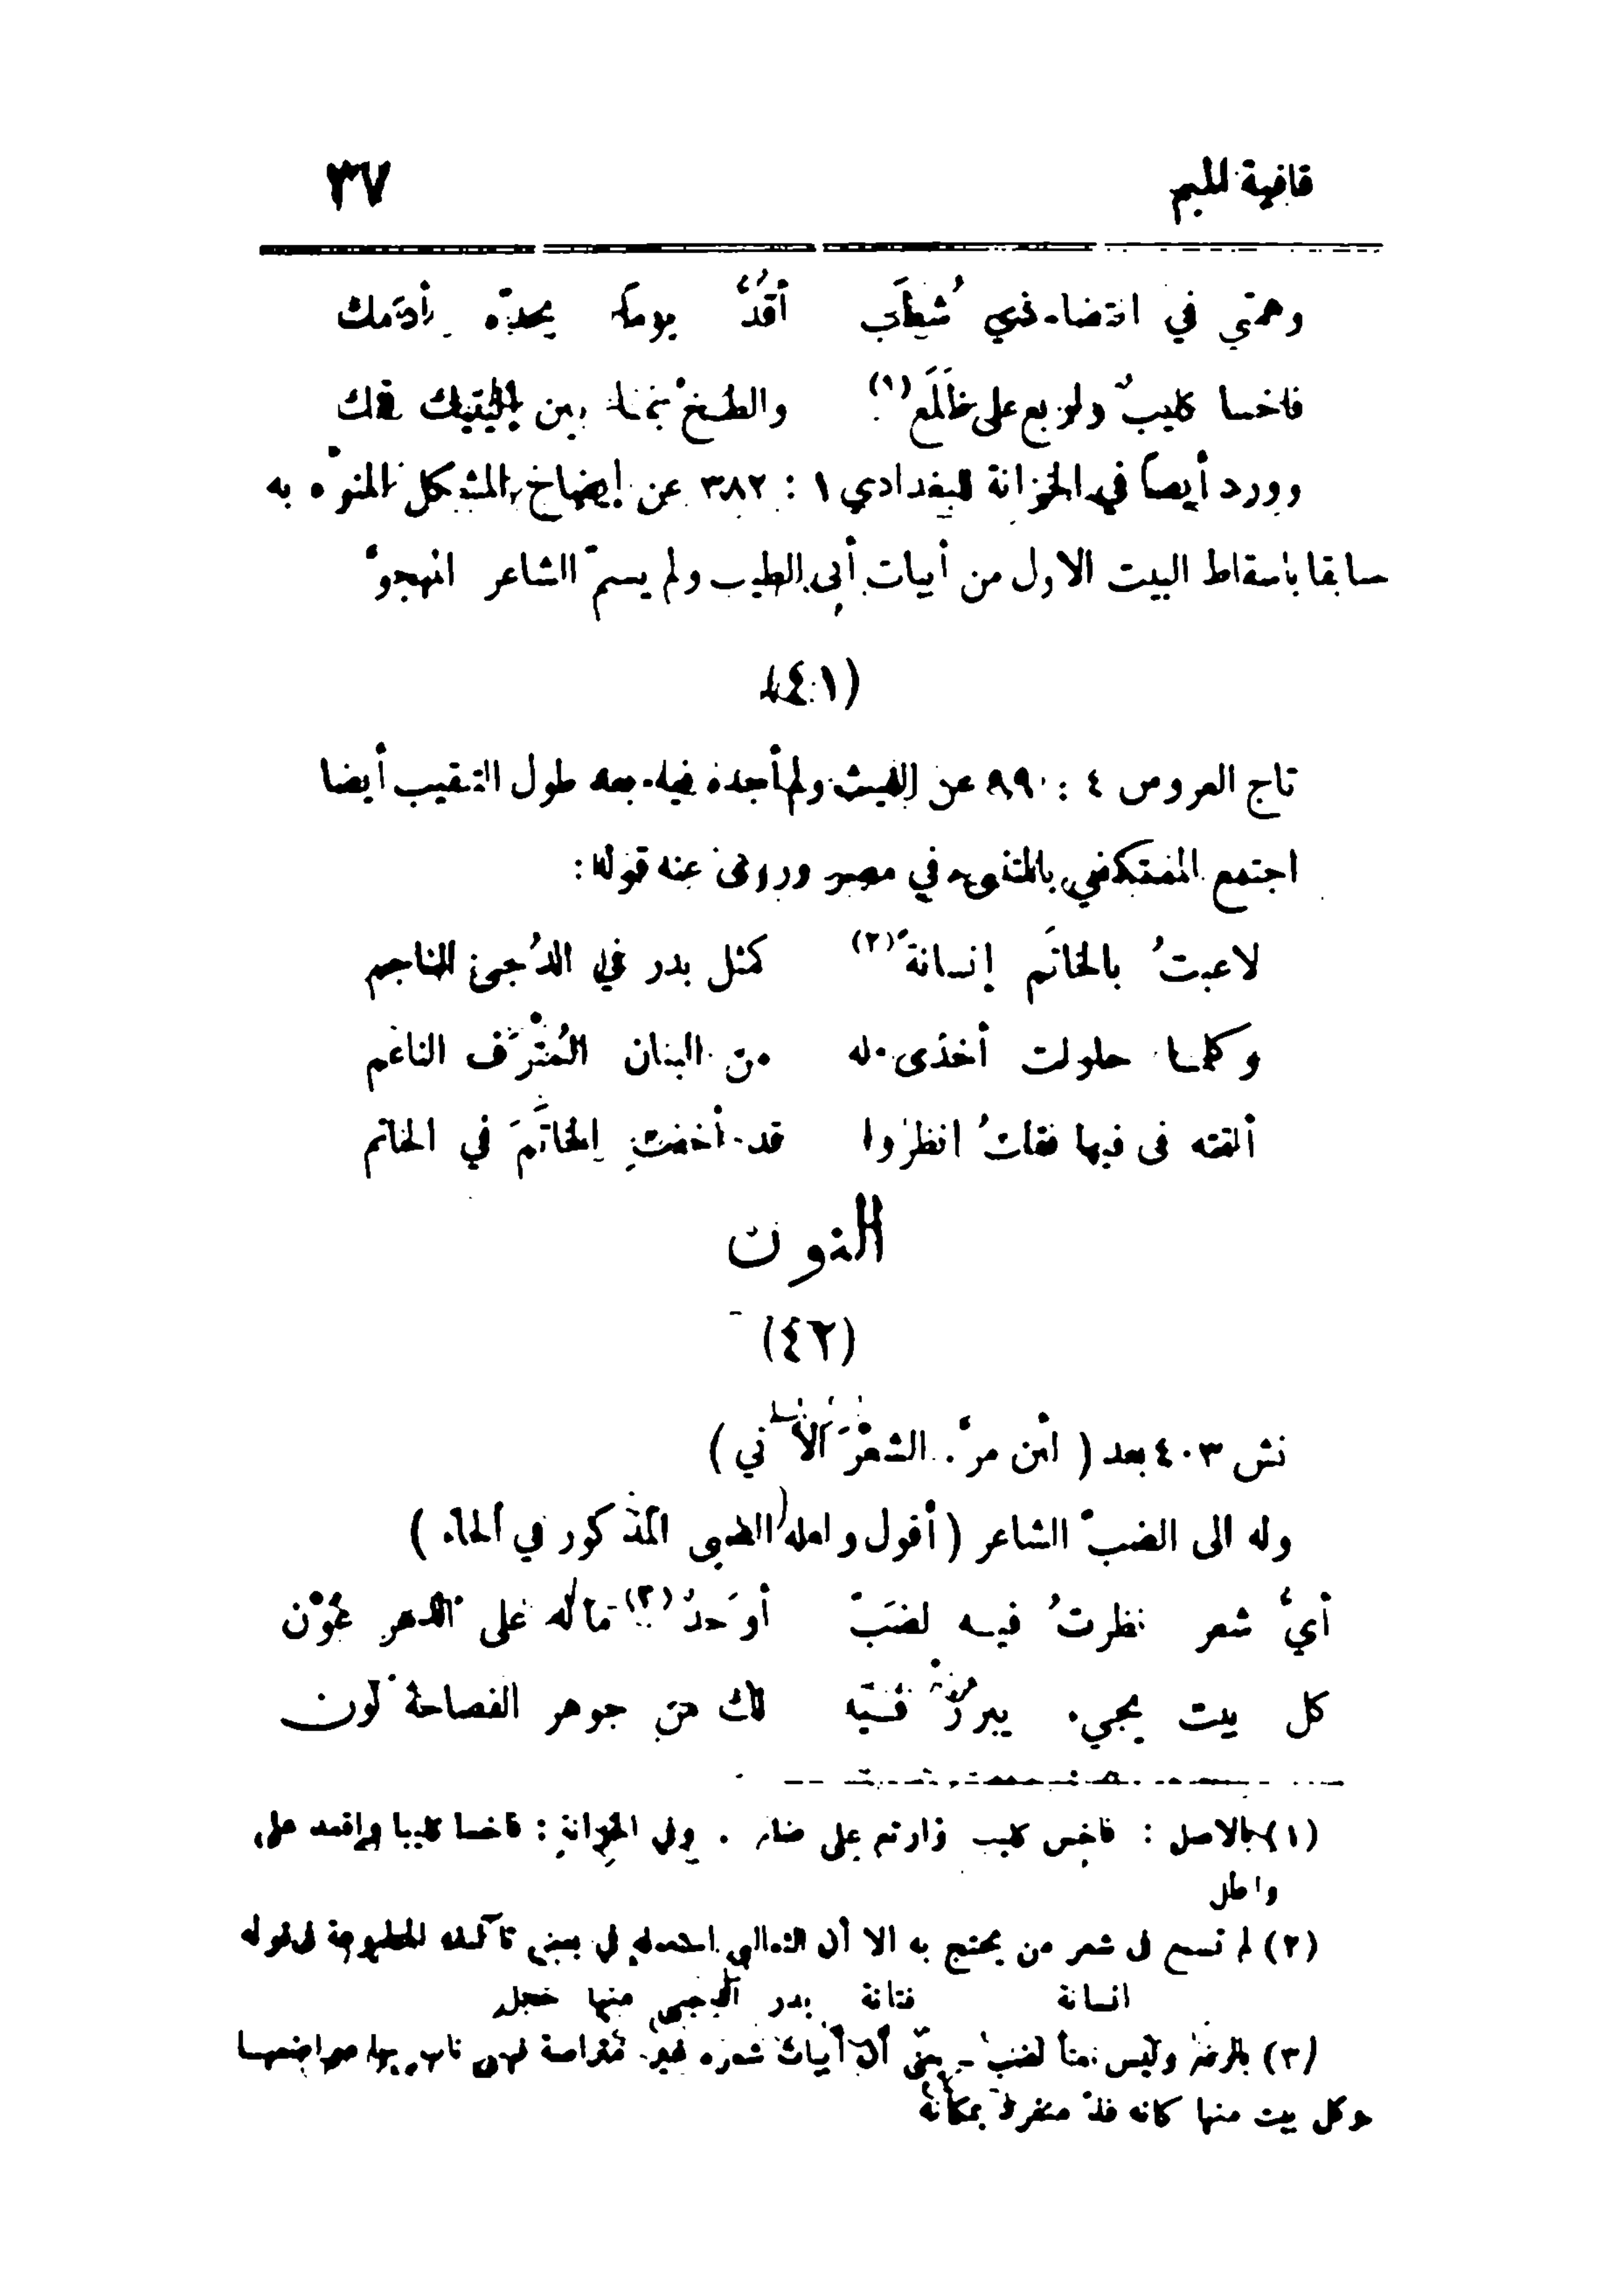 قافية الميم ٣٧
وهمتي في انتضاء ذي شُطَب أقُدُّ يوما بحدّه أدَمك
فاخسا كليبٌ واربع على ظَلَع (١) والطخْ بما بين أليتيك فمك
وورد أيضاً في الخزانة للبغدادي ١ : ٣٨٢ عن إيضاح المشكل المنوّه به
سابقا باسقاط البيت الاول من أبيات أبي الطيب ولم يسمّ الشاعر المهجوّ
(٤١)
تاج العروس ٤ : عن الغيث ولم أجده فيه بعد طول التنقيب أيضا
اجتمع بالمتنبي في مصر وروى عنه قوله :
لاعبتُ بالخاتَم إنسانةً (٢) كمثل بدر في الدُجى الناجم
وكلما حاولت أخذى له من البنان المُتْرَف الناعم
ألقته فى فيها فقلتُ انظرُوا قد أخفتِ الخاتَمَ في الخاتم
النون
(٤٢)
نش ٤٠٣ بعد ( )
وله الى الضبّ الشاعر ( أقول ولعله الضبى المذكور في الحاء )
أيُّ شعر نظرتُ فيه لضَبّ أوحدٌ (٣) مَا لَه على الدهر عَوْن
كل بيت يجيء يبرزُ فيه لك من جوهر الفصاحة لون
(١) بالاصل : فاخس كليب وارتع على ضلع . وفي الخزانة : فاخسا كليبا واقعد على
(٢) لم تسمع في شعر من يحتج به الا أن الثعالبي استعمله في بعض تآليفه المطبوعة في قوله
انسانة فتانة بدر الدجى منها خجل
(٣) بالرفع وليس نعتاً لضب ـ يعنى أن أبيات شعره غير متراصة فهى
وكل بيت منها كانه فذّ منفرد بمكانه